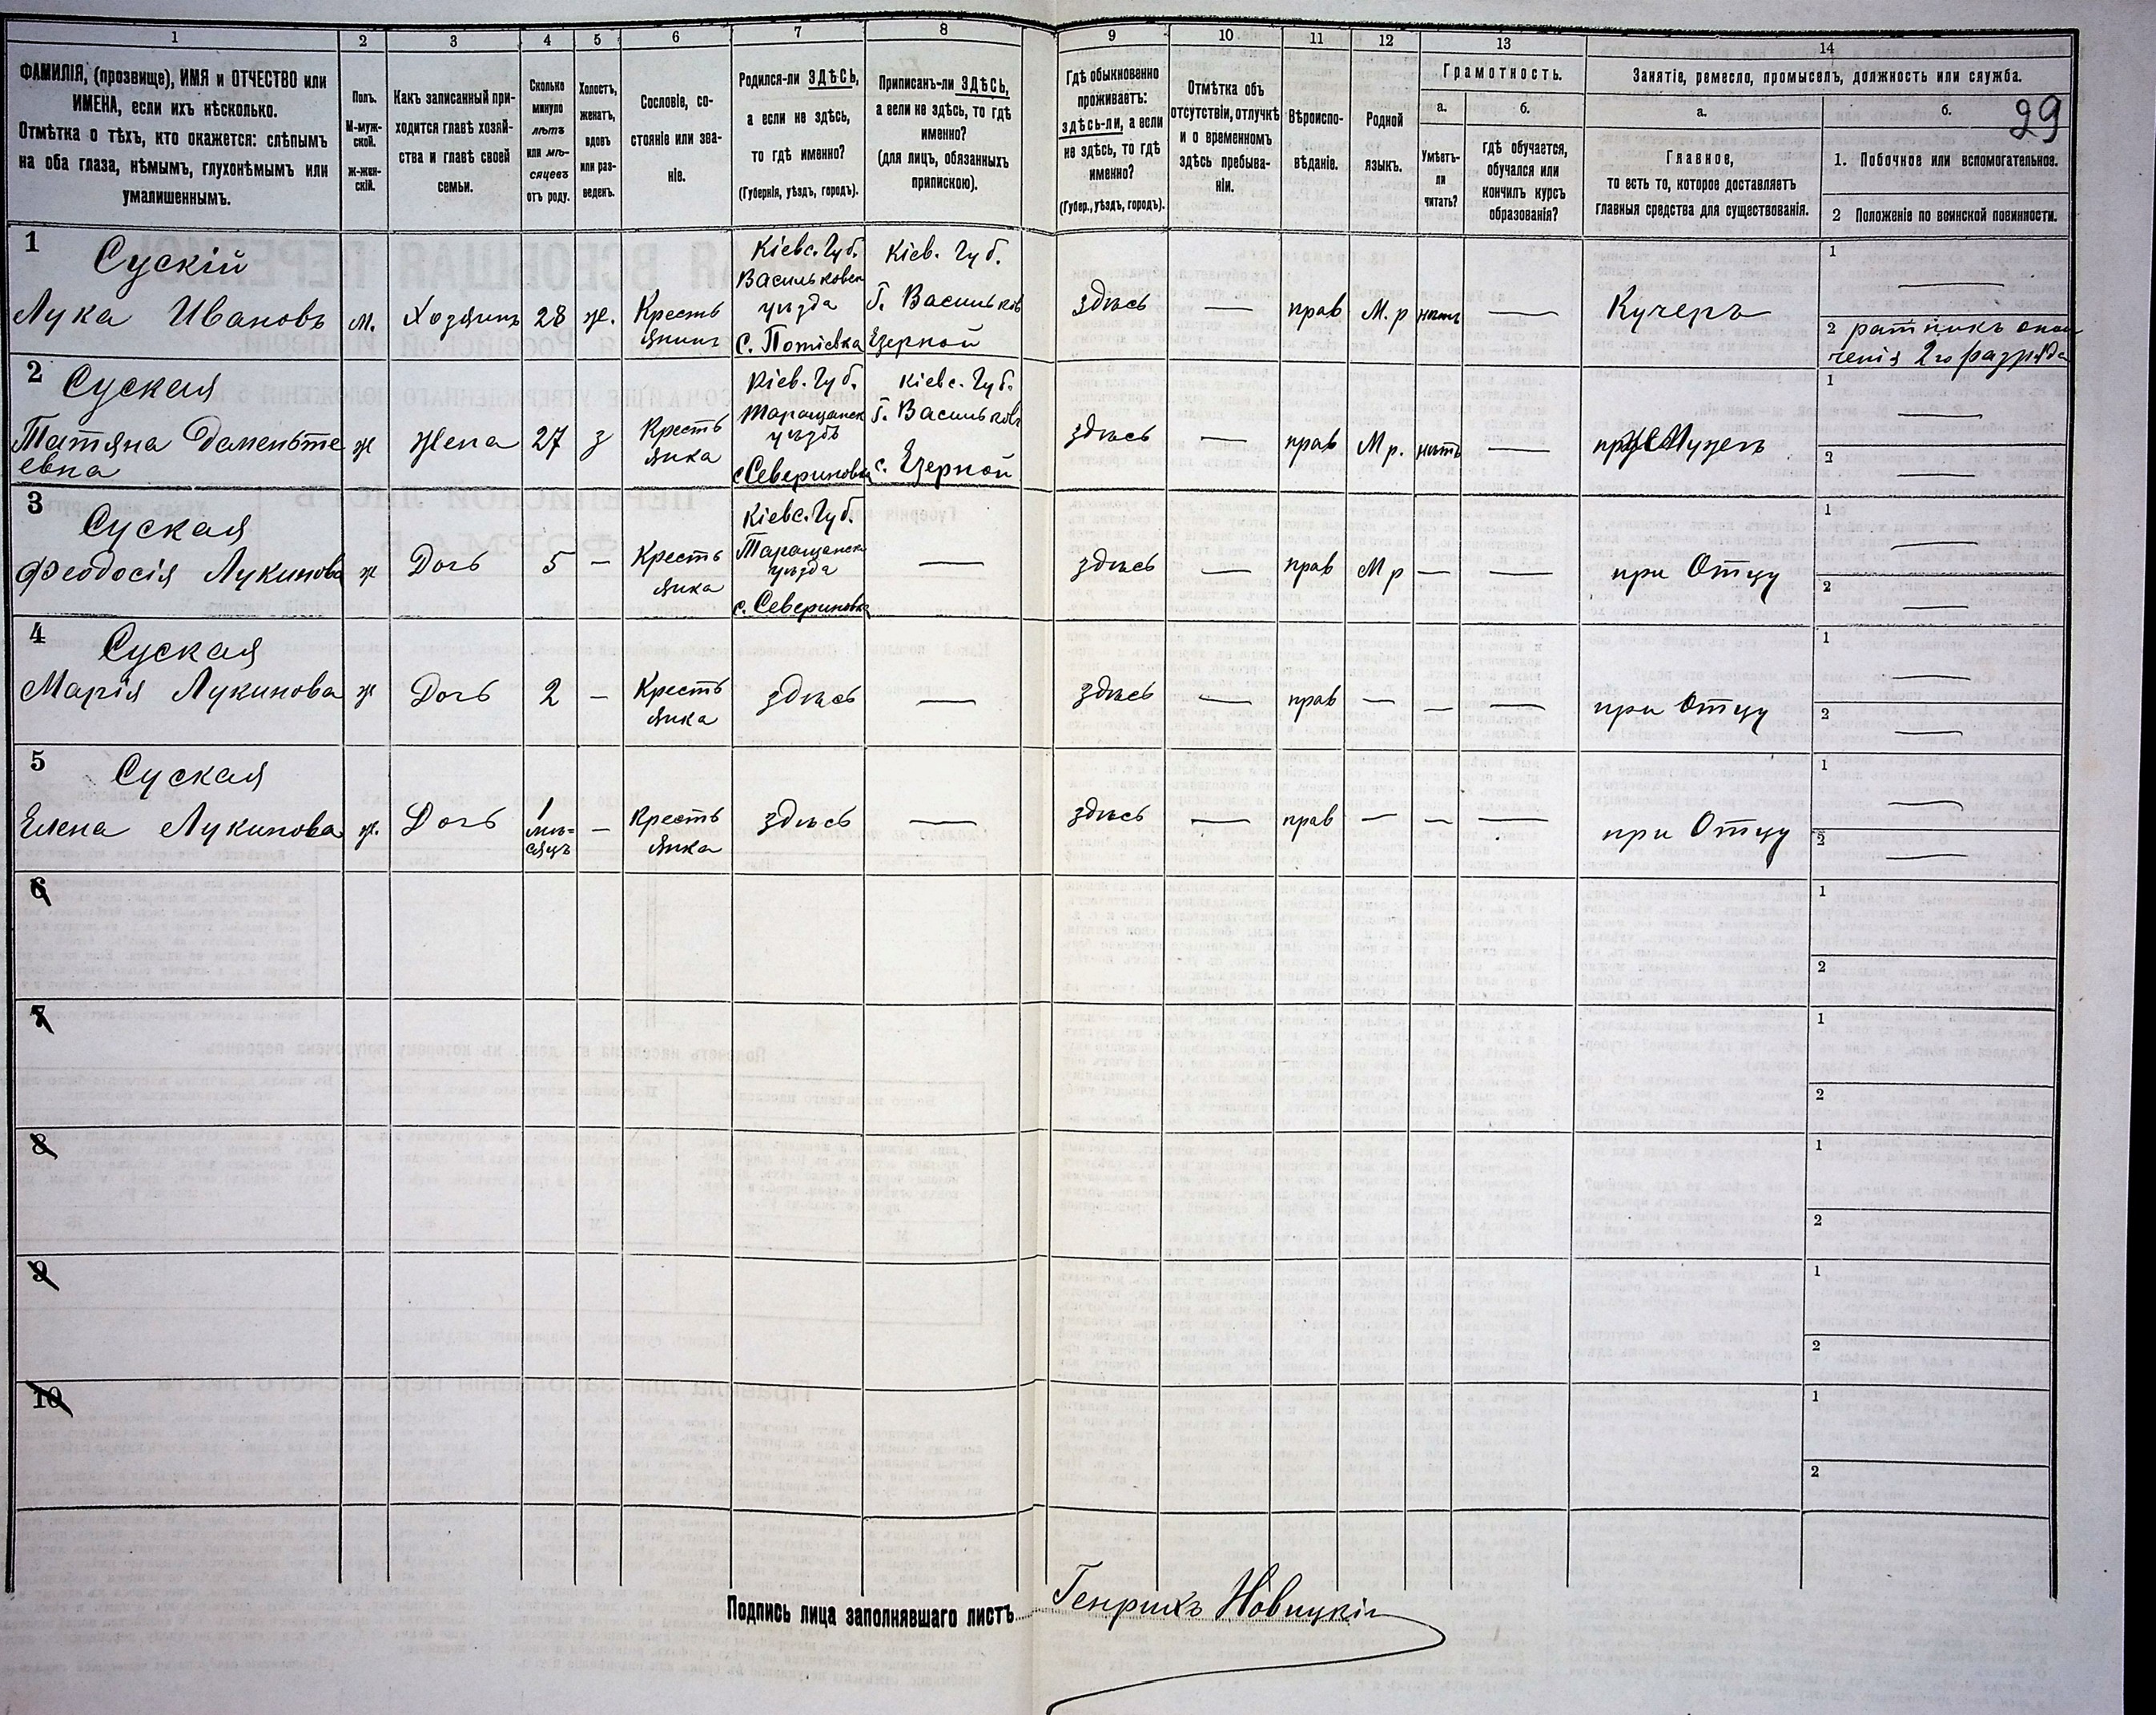 1 2 3 4 5 6 7 8 9 10 11 12 13 14
ФАМИЛІЯ, (прозвище), ИМЯ и ОТЧЕСТВО или
ИМЕНА, если ихъ нѣсколько.
Отмѣтка о тѣхъ, кто окажется: слѣпымъ
на оба глаза, нѣмымъ, глухонѣмымъ или
умалишеннымъ.
Полъ.
М-муж-
ской.
ж-жен-
скій.
Какъ записанный при-
ходится главѣ хозяй-
ства и главѣ своей
семьи.
Сколько
минуло
лѣтъ
или мѣ-
сяцевъ
отъ роду.
Холостъ,
женатъ,
вдовъ
или раз-
веденъ.
Сословіе, со-
стояніе или зва-
ніе.
Родился-ли ЗДѢСЬ,
а если не здѣсь,
то гдѣ именно?
(Губернія, уѣздъ, городъ).
Приписанъ-ли ЗДѢСЬ,
а если не здѣсь, то гдѣ
именно?
(для лицъ, обязанныхъ
припискою).
Гдѣ обыкновенно
проживаетъ:
здѣсь-ли, а если
не здѣсь, то гдѣ
именно?
(Губер., уѣздъ, городъ).
Отмѣтка объ
отсутствіи, отлучкѣ
и о временномъ
здѣсь пребыва-
ніи.
Вѣроиспо-
вѣданіе.
Родной
языкъ.
Грамотность.
а.
Умѣетъ-
ли
читать?
б.
гдѣ обучается,
обучался или
кончилъ курсъ
образованія?
Занятіе, ремесло, промыселъ, должность или служба.
а.
Главное,
то есть то, которое доставляетъ
главныя средства для существованія.
б.
29
1. Побочное или вспомогательное.
2 Положеніе по воинской повинности.
1
Сускій
Лука Ивановъ
м.
Хозяинъ
28
ж.
Кресть
янинъ
Кіевс. Губ.
Васильковск
уѣзда
с. Потіевка
Кіев. Губ.
Г. Васильков
Езерной
здѣсь
—
прав
М. р
нѣтъ
—
Кучеръ
1
—
2 ратникъ опол
ченія 2го разряда
2
Суская
Татяна Даменьте
евна
ж
Жена
27
з
Кресть
янка
Кіев. Губ.
Таращанск
уѣздъ
с Севериновка
Кіевс. Губ.
Г. Васильков
с. Езерной
здѣсь
—
прав
М р.
нѣтъ
—
при Мужеъ
1
—
2
—
3
Суская
Феодосія Лукинова
ж
Дочь
5
—
Кресть
янка
Кіевс. Губ.
Таращанск
уѣзда
с. Севериновка
—
здѣсь
—
прав
М р
—
—
при Отцу
1
—
2
—
4
Суская
Марія Лукинова
ж
Дочь
2
—
Кресть
янка
здѣсь
—
здѣсь
—
прав
—
—
—
при Отцу
1
—
2
—
5
Суская
Елена Лукинова
ж.
Дочь
1
мѣ=
сяцъ
—
Кресть
янка
здѣсь
—
здѣсь
—
прав
—
—
—
при Отцу
1
—
2
—
6
1
2
7
1
2
8
1
2
9
1
2
10
1
2
Подпись лица заполнявшаго листъ Генрихъ Новицкій